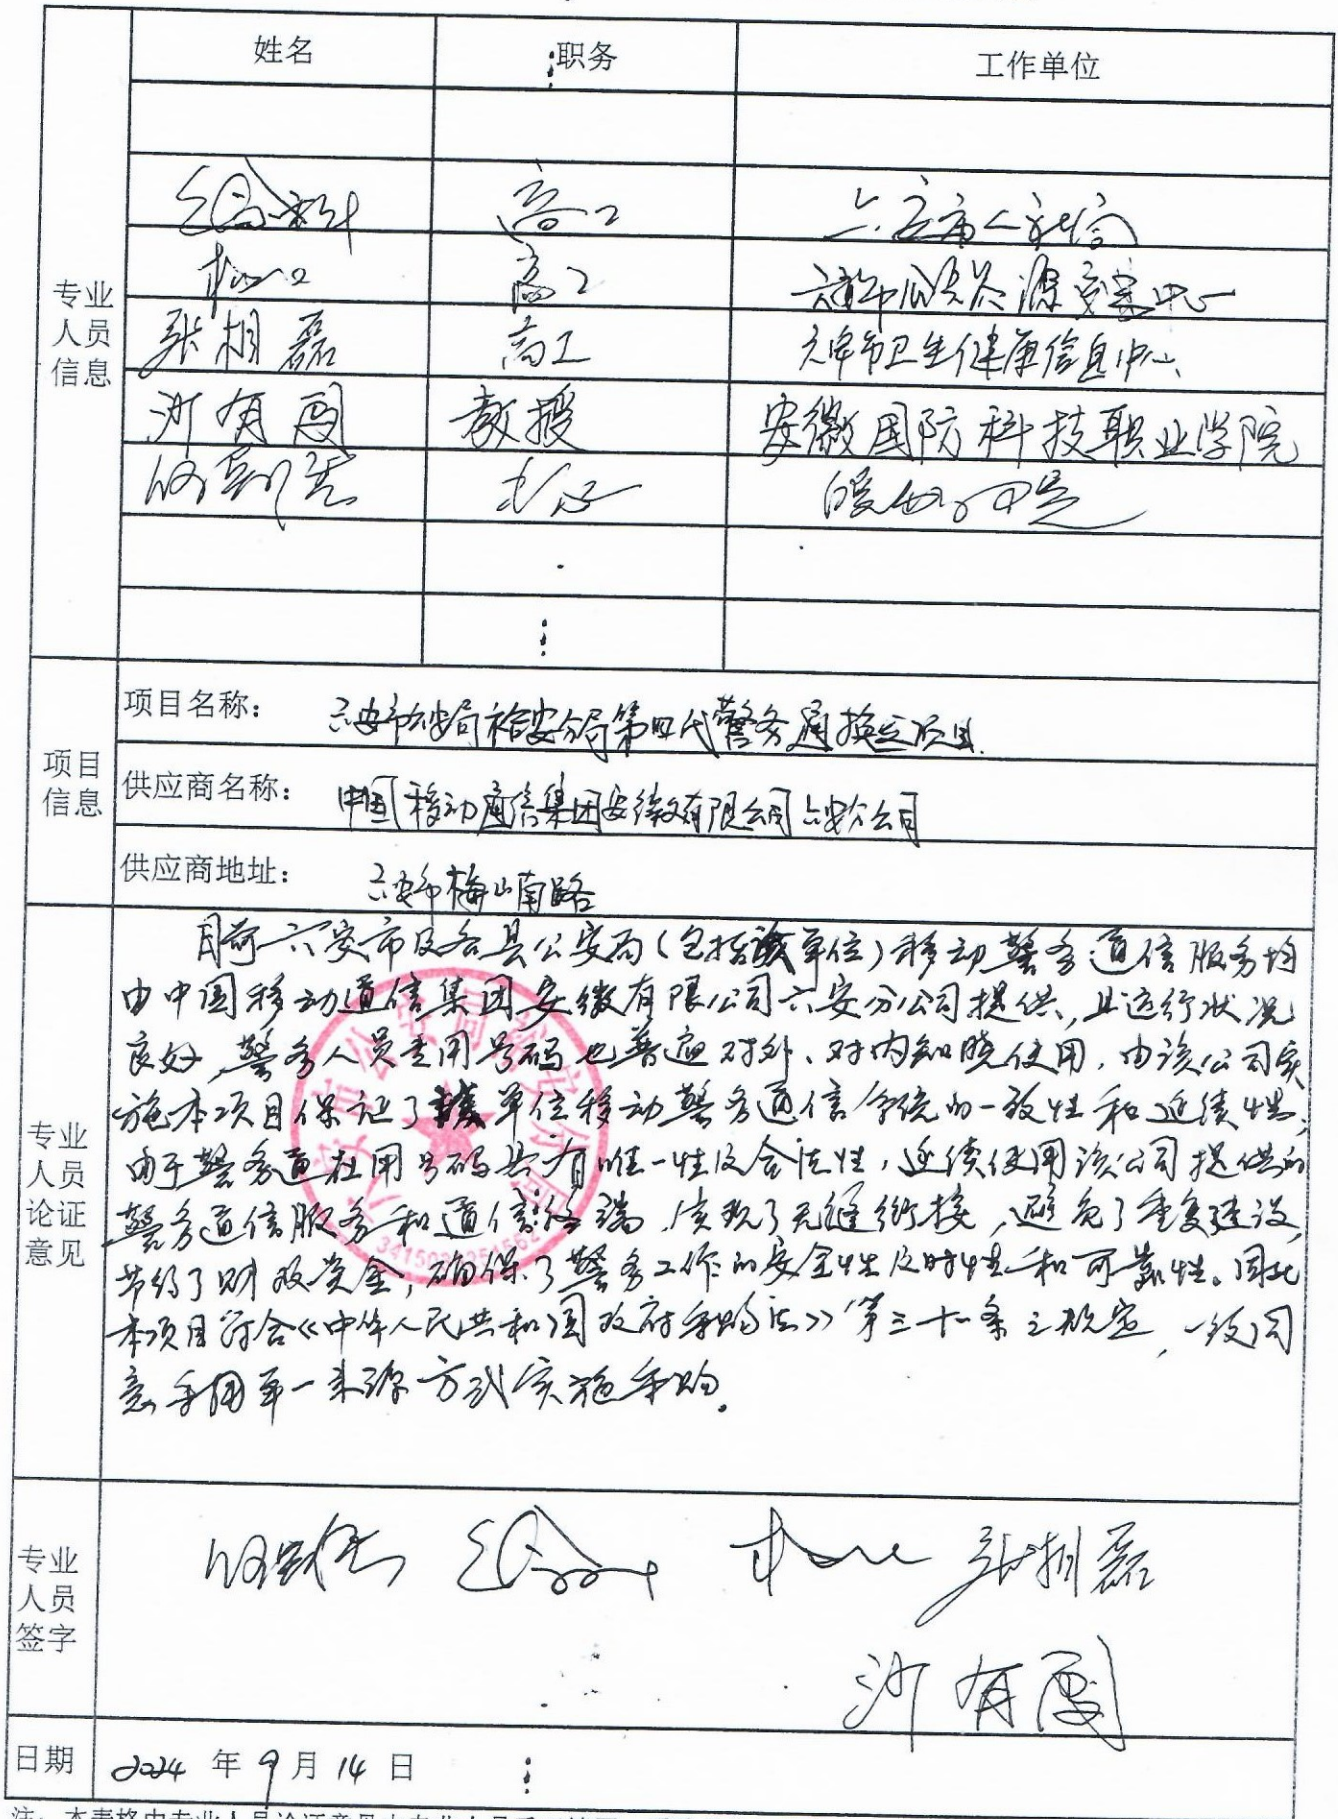 姓名 职务 工作单位
高工
高工
张相磊 高工 六安市卫生健康信息中心
沙有闯 教授 安徽国防科技职业学院
专业
人员
信息
项目
信息
项目名称： 六安市公安局裕安分局第四代警务通换定项目
供应商名称： 中国移动通信集团安徽有限公司六安分公司
供应商地址： 六安市梅山南路
专业
人员
论证
意见
目前六安市及各县公安局(包括该单位)移动警务通信服务均
由中国移动通信集团安徽有限公司六安分公司提供,且运行状况
良好,警务人员专用号码也普遍对外、对内知晓使用,由该公司实
施本项目保证了该单位移动警务通信系统的一致性和延续性;
由于警务通在用号码具有唯一性及合法性,延续使用该公司提供的
警务通信服务和通信终端,实现了无缝衔接,避免了重复建设,
节约了财政资金,确保了警务工作的安全性及时性和可靠性。因此
本项目符合《中华人民共和国政府采购法》第三十一条之规定,一致同
意采用单一来源方式实施采购。
专业
人员
签字
张相磊
沙有闯
日期 2024 年 9 月 14 日